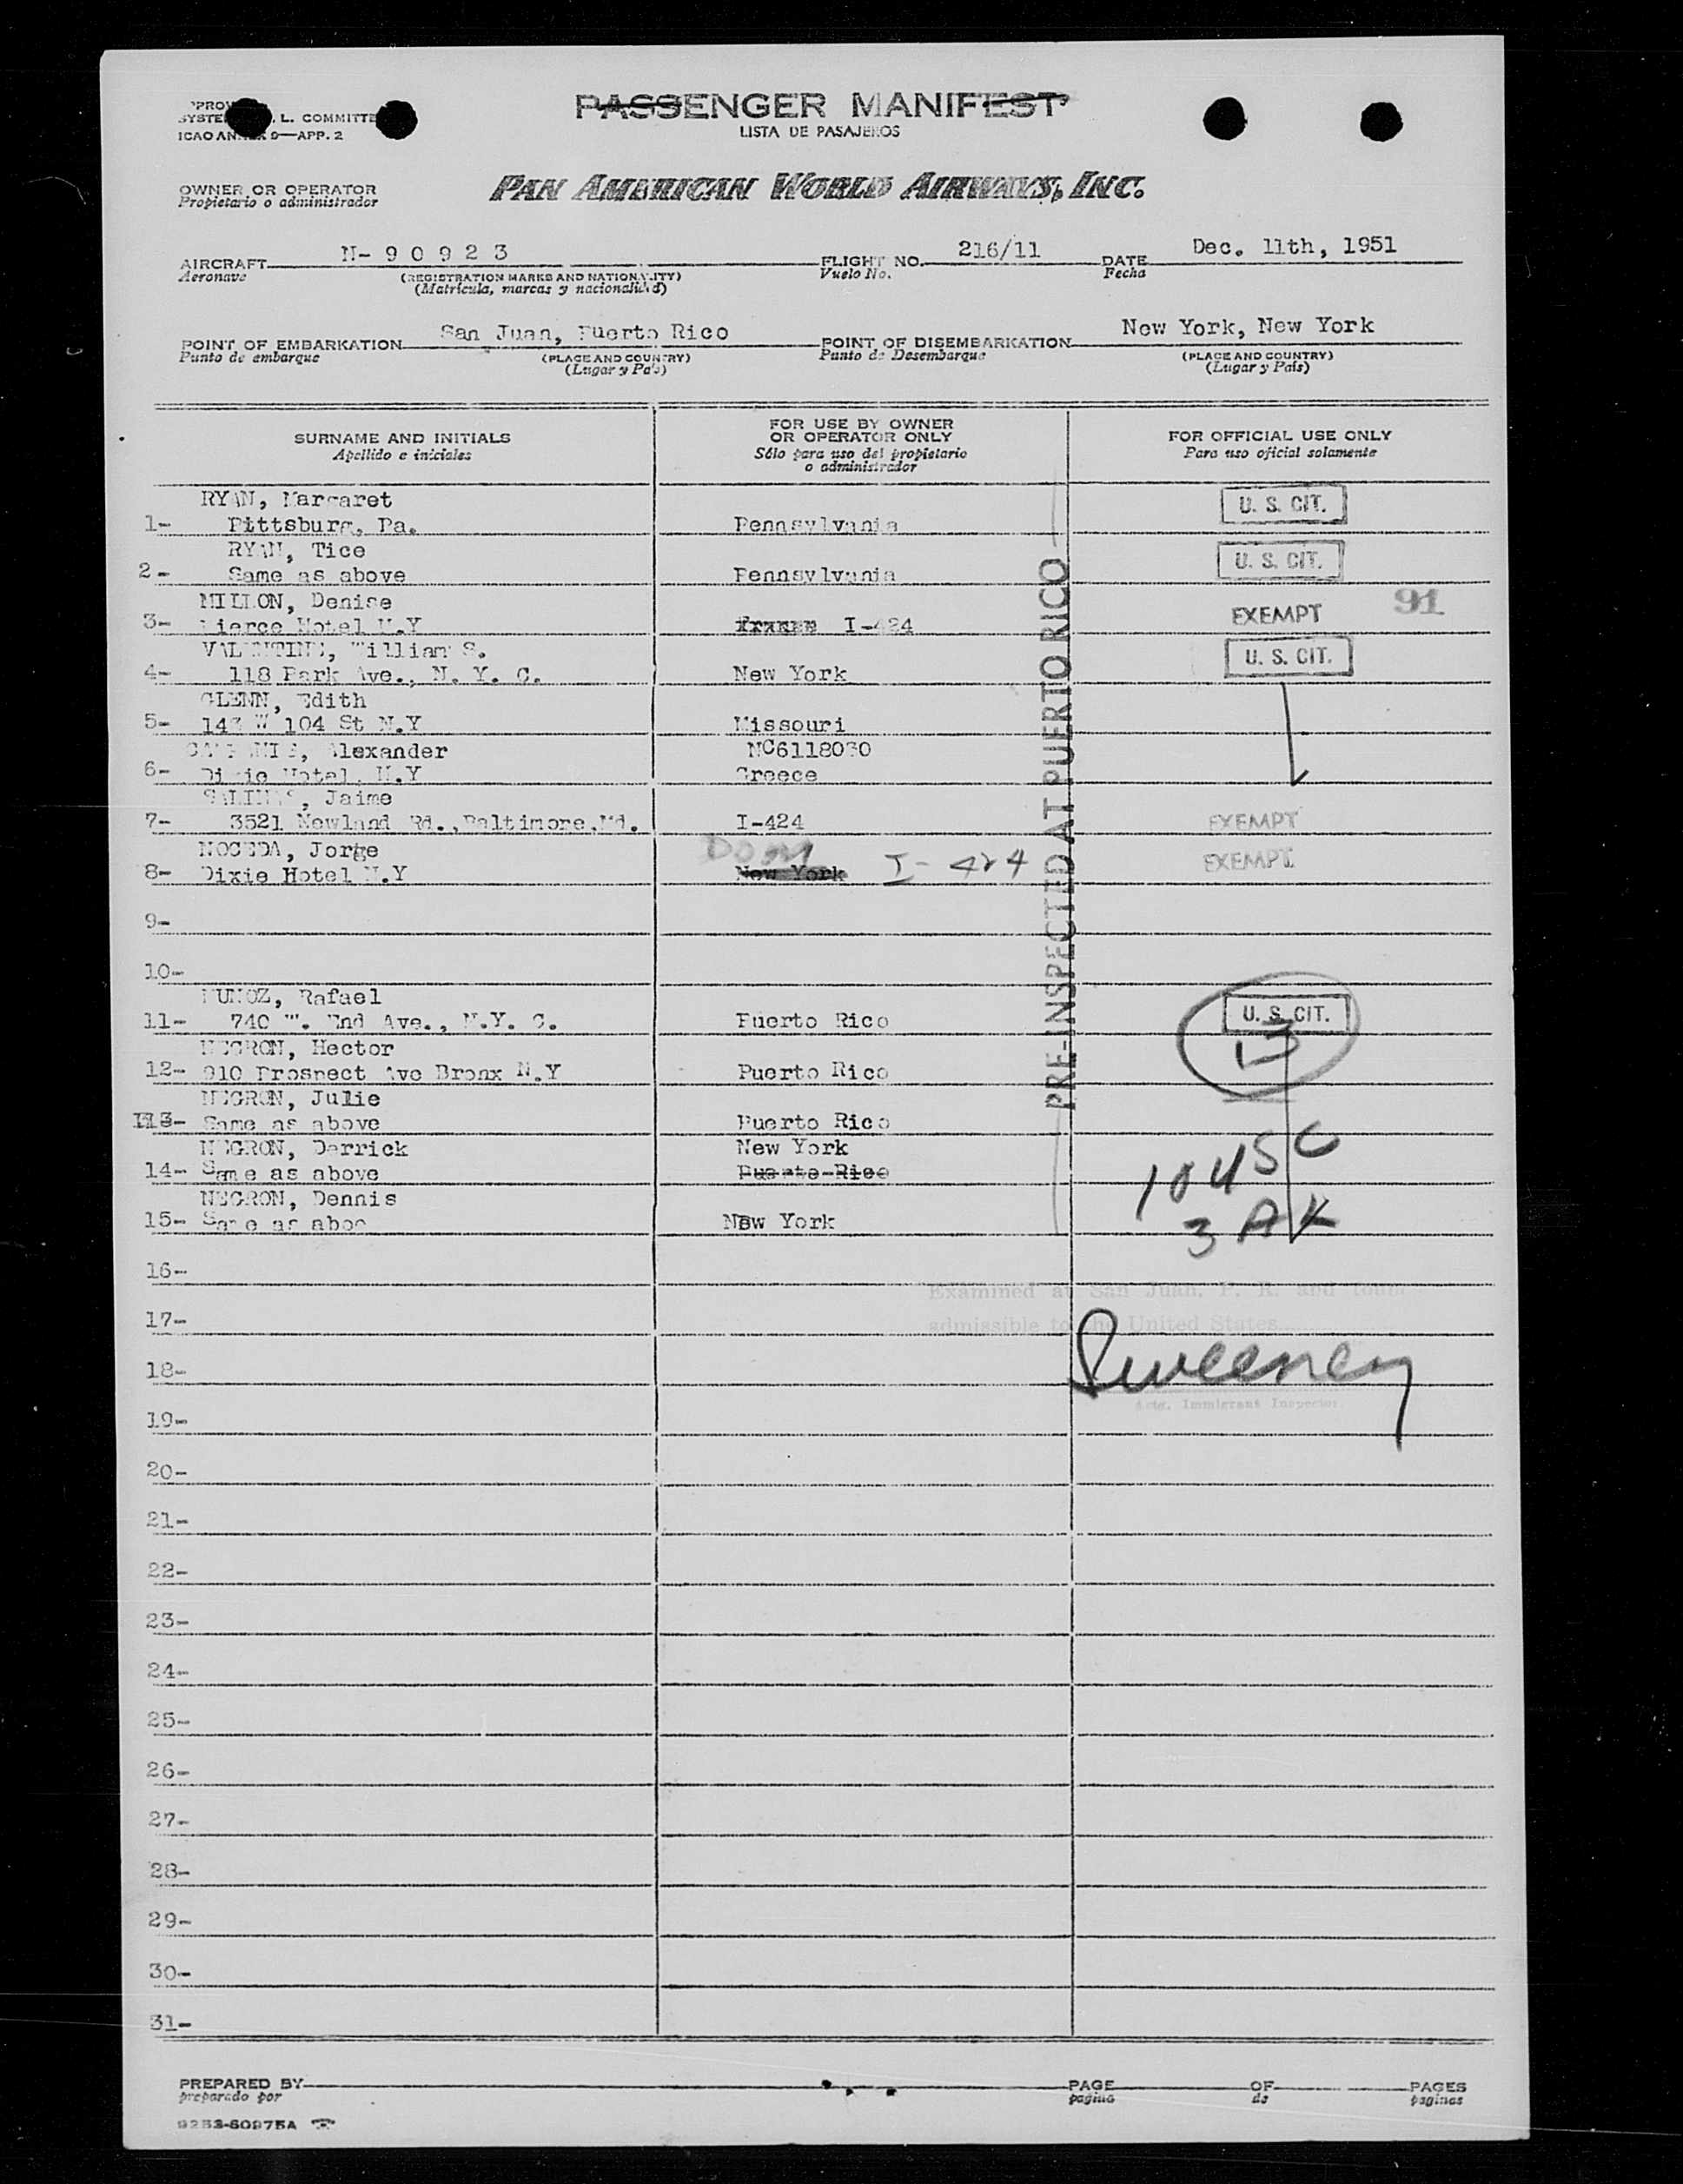 PASSENGER MANIFEST
LISTA DE PASAJEROS
L. COMMITTE
APP. 2
OWNER OR OPERATOR
Propietario o administrador
PAN AMERICAN WORLD AIRWAYS, INC.
AIRCRAFT N- 9 0 9 2 3 FLIGHT NO. 216/11 DATE Dec. 11th, 1951
Aeronave (REGISTRATION MARKS AND NATIONALITY) Vuelo No. Fecha
(Matrícula, marcas y nacionalidad)
POINT OF EMBARKATION San Juan, Puerto Rico POINT OF DISEMBARKATION New York, New York
Punto de embarque (PLACE AND COUNTRY) Punto de Desembarque (PLACE AND COUNTRY)
(Lugar y País) (Lugar y País)
SURNAME AND INITIALS
Apellido e iniciales
FOR USE BY OWNER
OR OPERATOR ONLY
Sólo para uso del propietario
o administrador
FOR OFFICIAL USE ONLY
Para uso oficial solamente
RYAN, Margaret U. S. CIT.
1- Pittsburg, Pa. Pennsylvania
RYAN, Tice U. S. CIT.
2- Same as above Pennsylvania
MILLON, Denise EXEMPT 91
3- Pierce Hotel N.Y I-424
VALENTINE, William S. U. S. CIT.
4- 118 Park Ave., N. Y. C. New York
GLENN, Edith
5- W 104 St N.Y Missouri
Alexander
6- Dixie Hotel, N.Y Greece
SALINAS, Jaime
7- 3521 Newland Rd.,Baltimore,Md. I-424 EXEMPT
Jorge Dom
8- Dixie Hotel N.Y New York I-424 EXEMPT
9-
10-
MUNOZ, Rafael U. S. CIT.
11- 740 W. End Ave., N.Y. C. Puerto Rico 13
NEGRON, Hector
12- 910 Prospect Ave Bronx N.Y Puerto Rico
NEGRON, Julie
13- Same as above Puerto Rico
NEGRON, Derrick New York
14- Same as above Puerto Rico
NEGRON, Dennis
15- Same as aboe New York
PRE-INSPECTED AT PUERTO RICO
10 USC
3 A
16-
Examined at San Juan, P. R. and found
17-
admissible to the United States
Sweeney
18-
Immigrant Inspector
19-
20-
21-
22-
23-
24-
25-
26-
27-
28-
29-
30-
31-
PREPARED BY PAGE OF PAGES
preparado por página de páginas